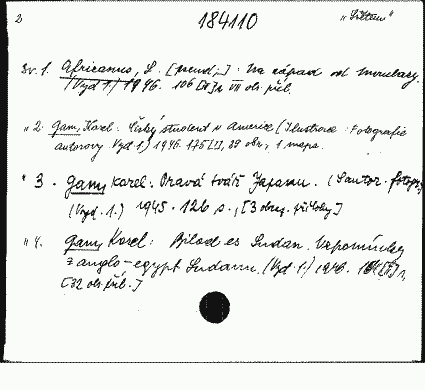 2 184110 "Světem"
Sv. 1. Africanus, L. [pseud.]: Na západ od
(Vyd. 1.) 1946. 106 [II] s. VII obr. příl.
" 2. Gamy Karel: Český student v Americe (Ilustrace: Fotografie
autorovy. Vyd. 1.) 1946. 175 [I], 39 obr., 1 mapa.
" 3. Gamy Karel: Pravá tvář Japanu. (S autor. fotogr.)
(Vyd. 1.) 1945. 126 s., [3 obraz. přílohy]
" 4. Gamy Karel: Bilad es Sudan. Vzpomínky
z anglo-egypt Sudanu. (Vyd. 1.) 1946. s.,
[32 obr. příl.]